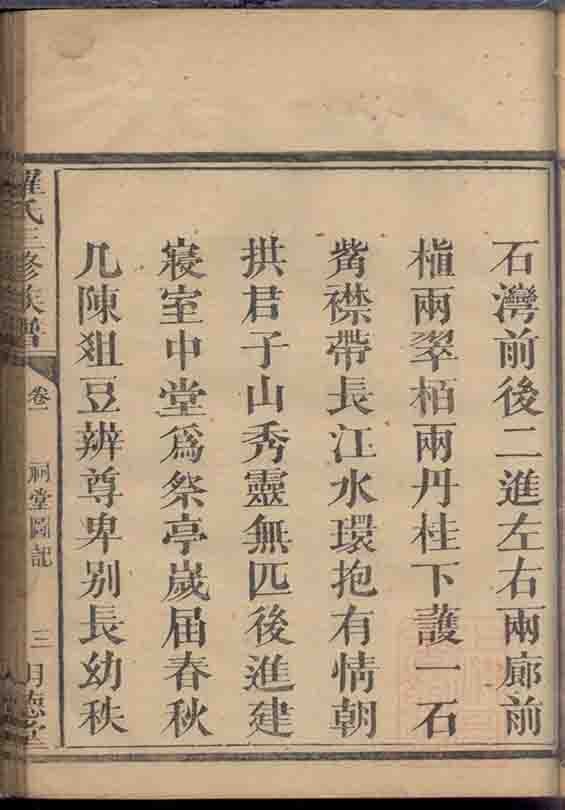 石灣前後二進左右兩廊前
植兩翠栢兩丹桂下護一石
觜襟帶長江水環抱有情朝
拱君子山秀靈無匹後進建
寢室中堂為祭亭歲届春秋
几陳爼豆辨尊卑别長幼秩
羅氏三修族譜
卷一
祠堂圖記
三
明德堂